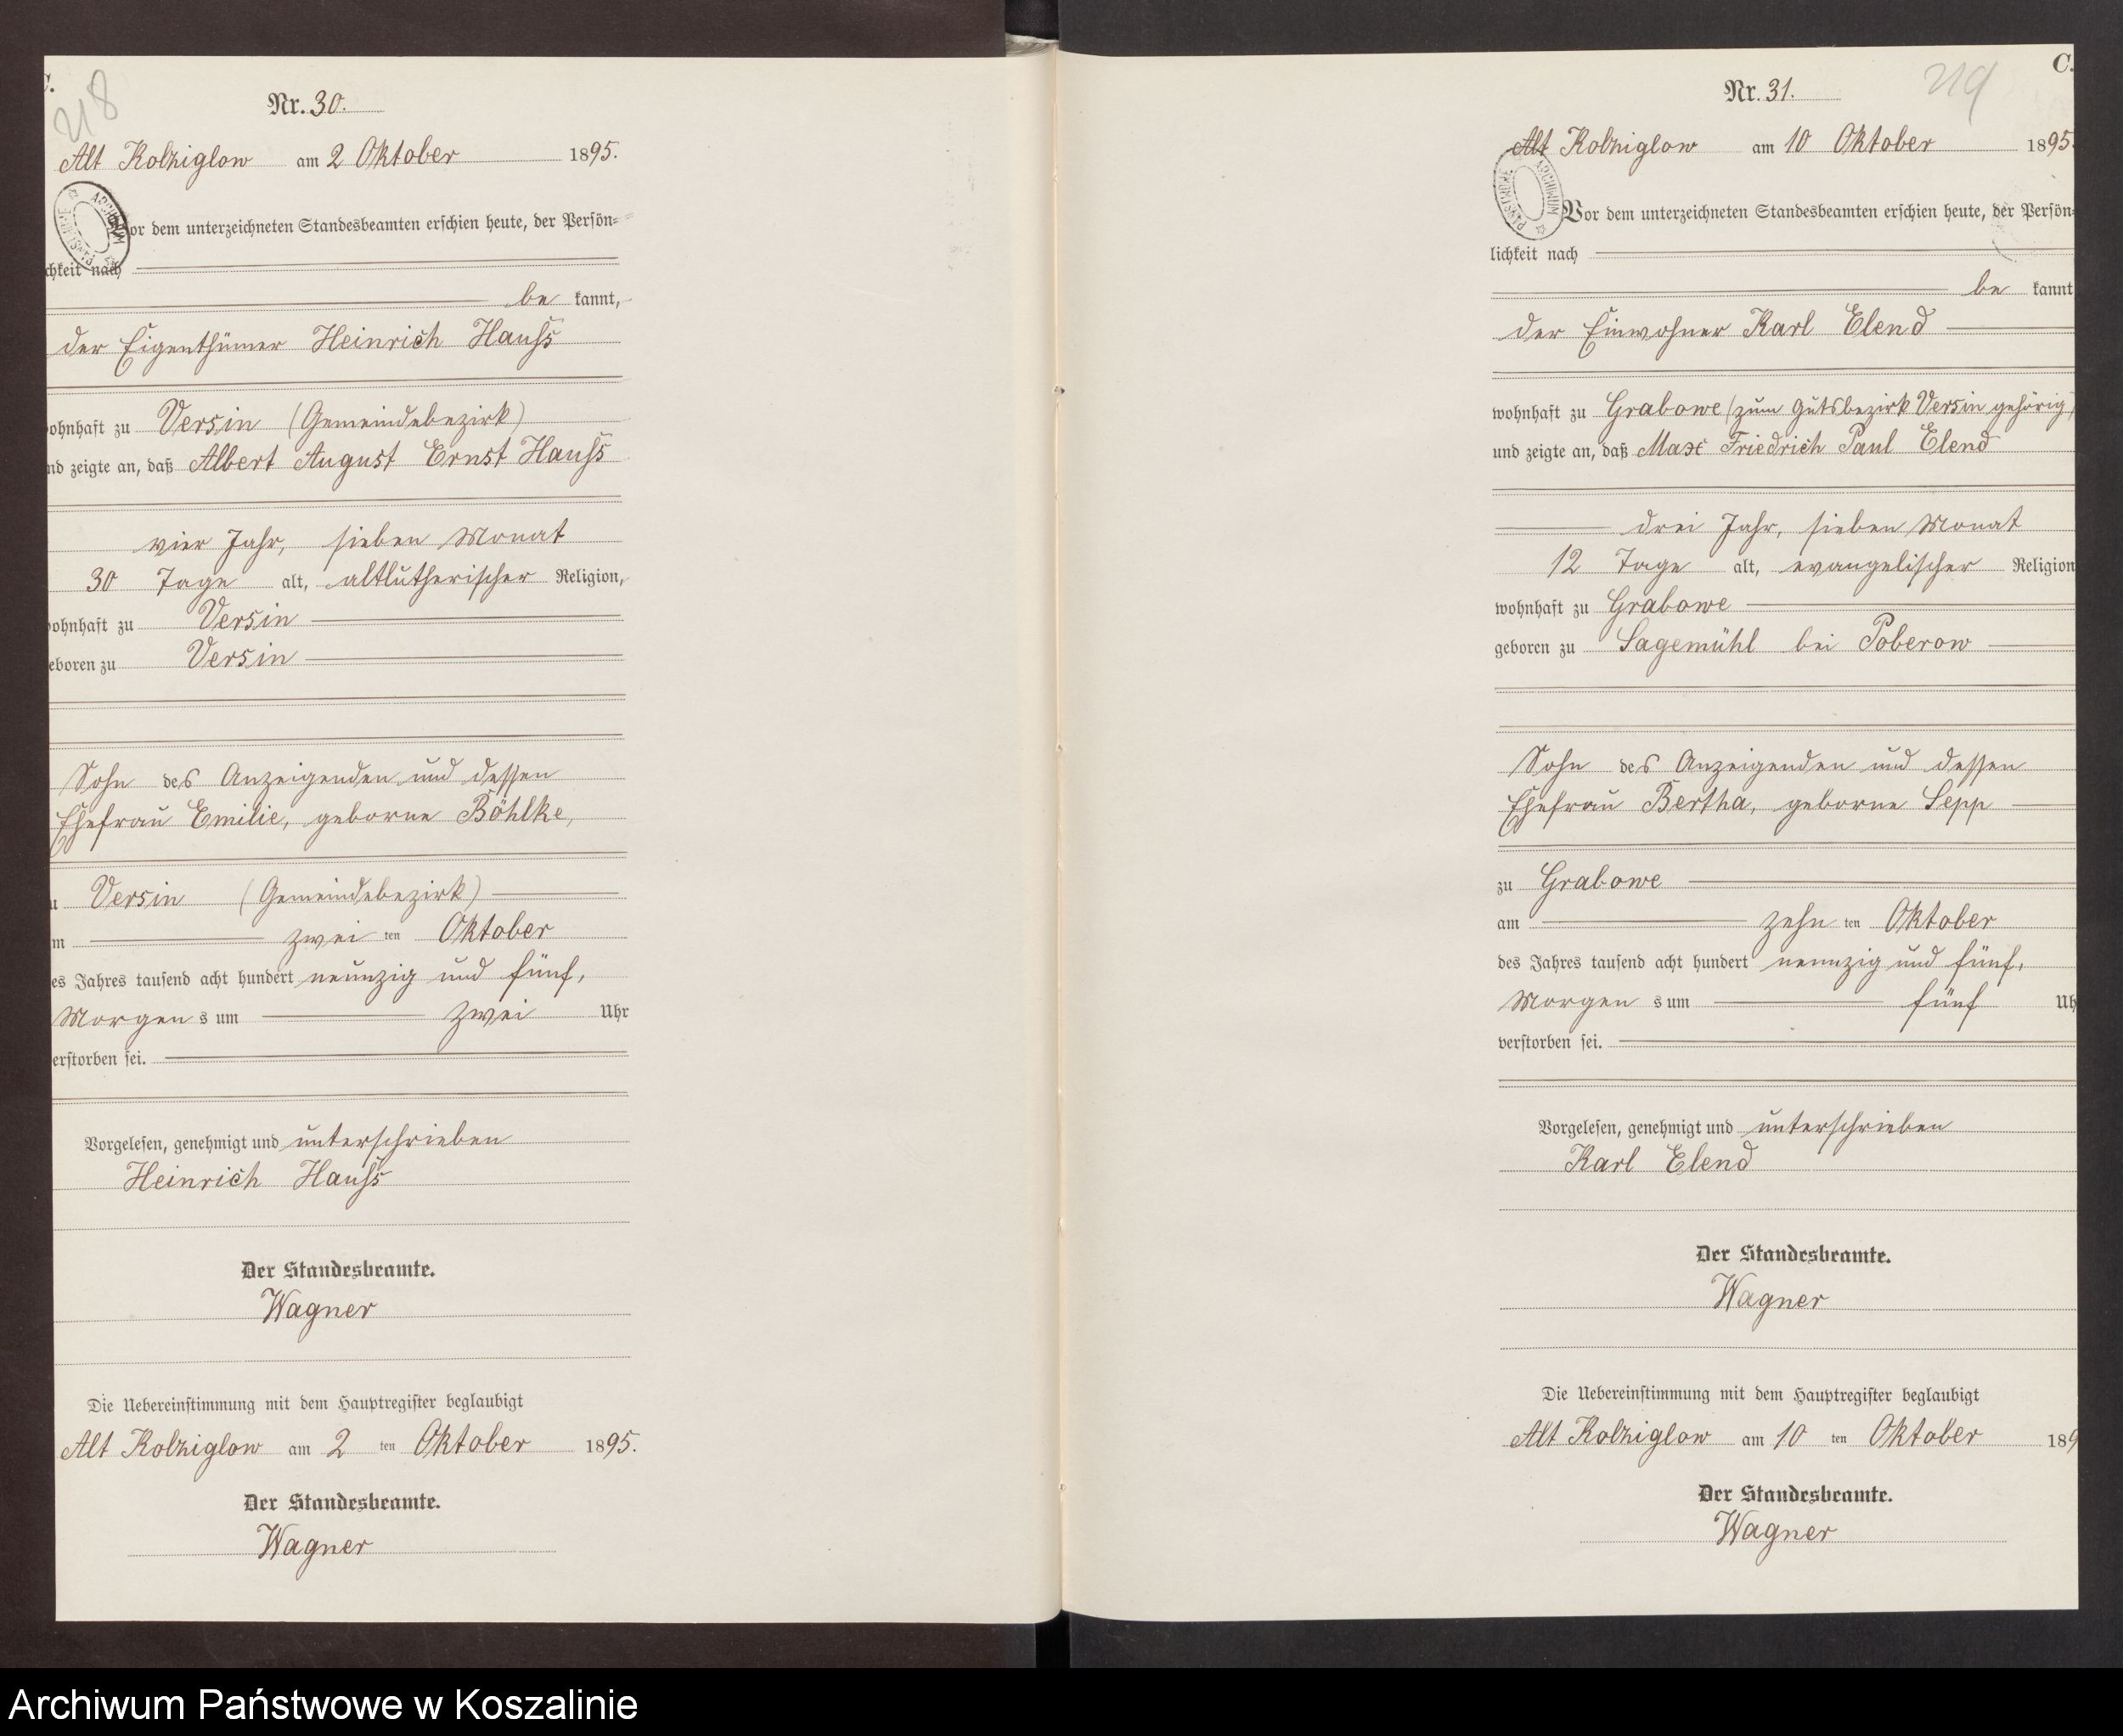 C.
218
Nr. 30.
Alt Kolziglow am 2 Oktober 1895.
ARCHIWUM PAŃSTWOWE
Vor dem unterzeichneten Standesbeamten erschien heute, der Persön=
chkeit nach
be kannt,
der Eigenthümer Heinrich Hauss
ohnhaft zu Versin (Gemeindebezirk)
nd zeigte an, daß Albert August Ernst Hauss
vier Jahr, sieben Monat
30 Tage alt, altlutherischer Religion,
ohnhaft zu Versin
eboren zu Versin
Sohn des Anzeigenden und dessen
Ehefrau Emilie, geborne Böhlke,
u Versin (Gemeindebezirk)
m zwei ten Oktober
es Jahres tausend acht hundert neunzig und fünf,
Morgen s um zwei Uhr
erstorben sei.
Vorgelesen, genehmigt und unterschrieben
Heinrich Hauss
Der Standesbeamte.
Wagner
Die Uebereinstimmung mit dem Hauptregister beglaubigt
Alt Kolziglow am 2 ten Oktober 1895.
Der Standesbeamte.
Wagner
C.
219
Nr. 31.
Alt Kolziglow am 10 Oktober 1895
ARCHIWUM PAŃSTWOWE
Vor dem unterzeichneten Standesbeamten erschien heute, der Persön=
lichkeit nach
be kannt
der Einwohner Karl Elend
wohnhaft zu Grabowe (zum Gutsbezirk Versin gehörig)
und zeigte an, daß Max Friedrich Paul Elend
drei Jahr, sieben Monat
12 Tage alt, evangelischer Religion
wohnhaft zu Grabowe
geboren zu Sagemühl bei Poberow
Sohn des Anzeigenden und dessen
Ehefrau Bertha, geborne Sepp
zu Grabowe
am zehn ten Oktober
des Jahres tausend acht hundert neunzig und fünf,
Morgen s um fünf Uh
verstorben sei.
Vorgelesen, genehmigt und unterschrieben
Karl Elend
Der Standesbeamte.
Wagner
Die Uebereinstimmung mit dem Hauptregister beglaubigt
Alt Kolziglow am 10 ten Oktober 189
Der Standesbeamte.
Wagner
Archiwum Państwowe w Koszalinie